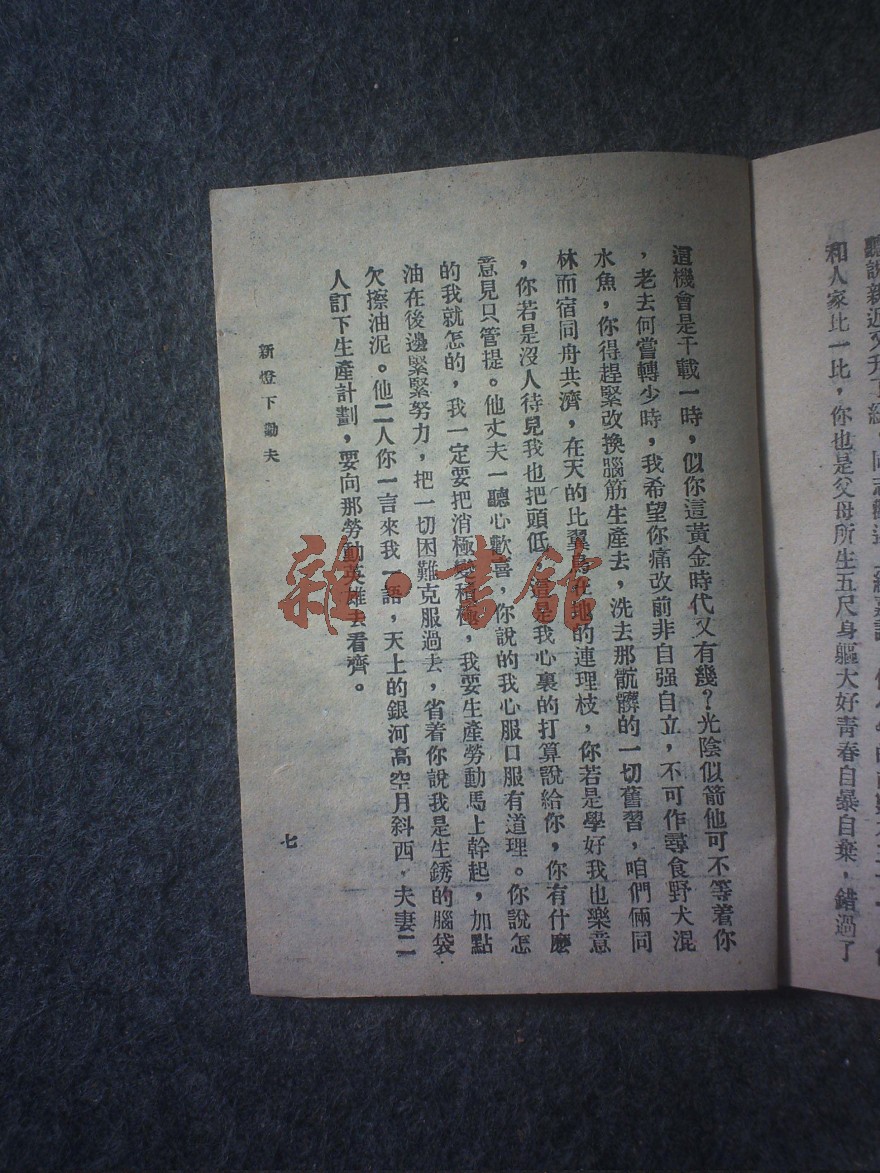 和人家比一比，你也是父母所生五尺身軀大好青春自暴自棄，錯過了
這機會是千載一時，似你這黃金時代又有幾？光陰似箭他可不等着你
，老去何嘗轉少時，我希望你痛改前非自强自立，不可作尋食野犬混
水魚，你得趕緊改換腦筋生產去，洗去那骯髒的一切舊習，咱們倆同
林而宿同舟共濟，在天的比翼鳥在地的連理枝，你若是學好我也樂意
，你若是沒人待見我也把頭低，這是我心裏的打算說給你，你有什麼
意見只管提。他丈夫一聽心歡喜，你說的我心服口服有道理。你說怎
的我就怎的，我一定要把消極變積極，我要生產勞動馬上幹起，加點
油在後邊緊緊努力，把一切困難克服過去，省着你說我是生銹的腦袋
欠擦油泥。他二人你一言來我一語，天上的銀河高空月斜西，夫妻二
人訂下生產計劃，要向那勞動英雄去看齊。
新燈下勸夫
七
雜·書館